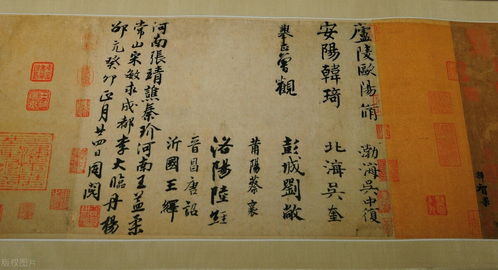 廬陵歐陽脩 渤海吳中復
安陽韓琦 北海吳奎
舉正曾觀 彭城劉敞
莆陽蔡襄
洛陽陸經
晉昌唐詔
沂國王繹
河南張靖譙秦玠河南王益柔
常山宋敏求成都李大臨丹楊
邵亢癸卯正月廿四日同閱
版权图片